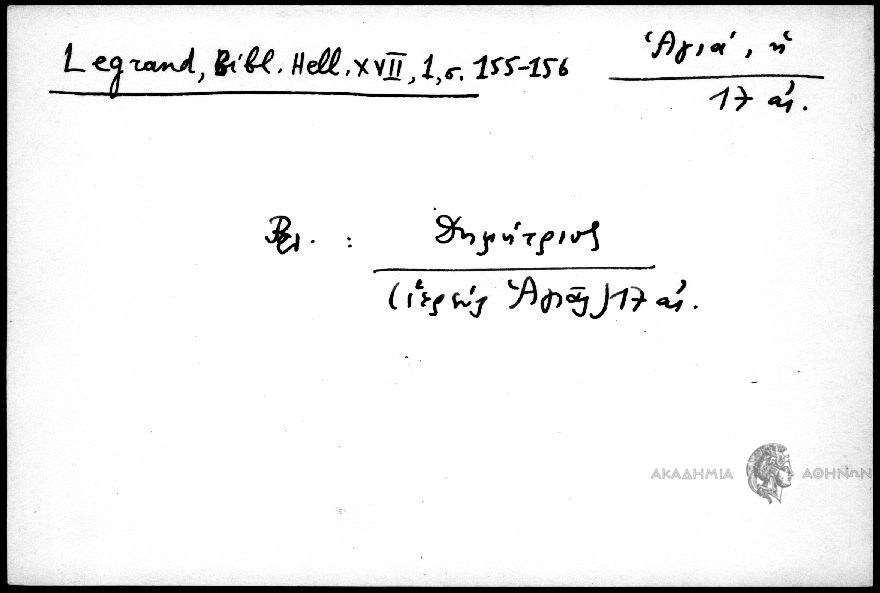 Legrand, Bibl. Hell. XVII, 1, σ. 155-156
Ἁγιά, ἡ
17 αἰ.
Βλ. : Δημήτριος
(ἱερεύς Ἁγιᾶς) 17 αἰ.
ΑΚΑΔΗΜΙΑ ΑΘΗΝΩΝ